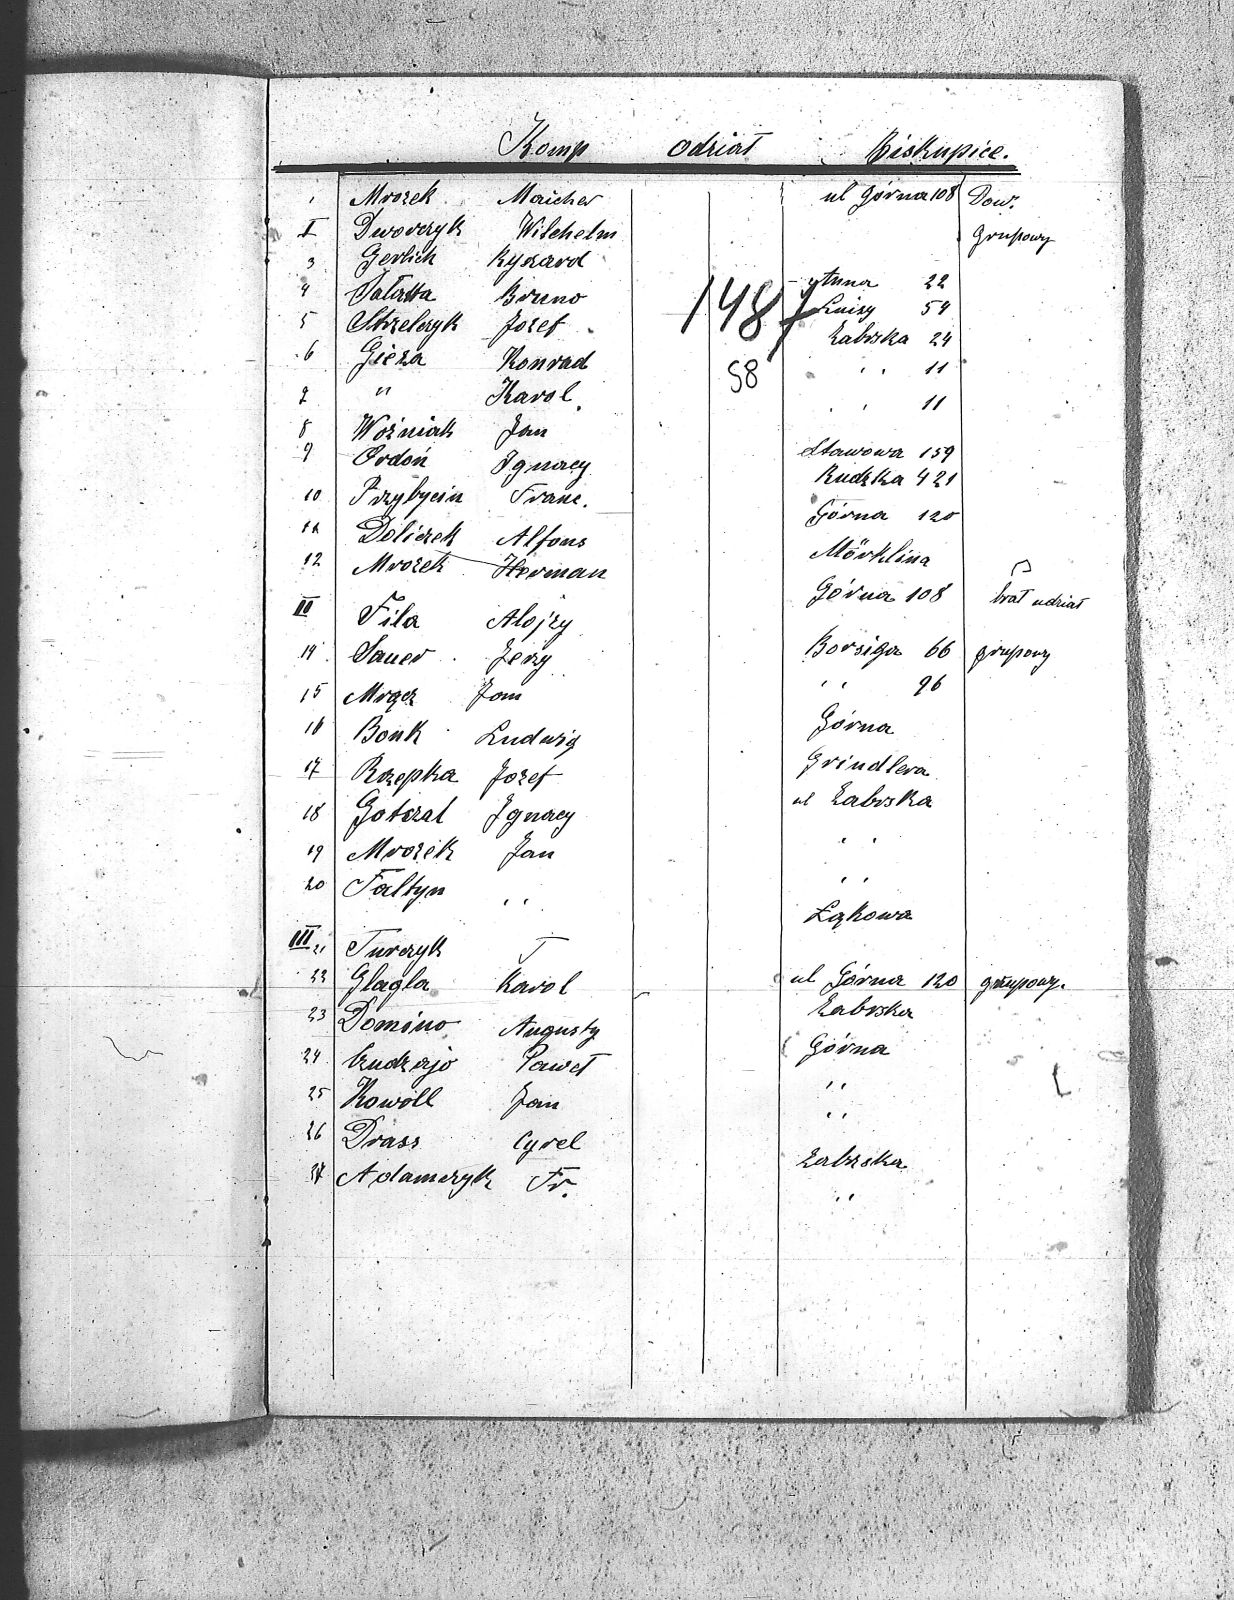 Komp odział Biskupice.
1 Mrozek Maicher ul Górna 108 Dow.
I Dworczyk Wilchelm grupowy
3 Gerlich Ryszard
4 Sałatta Bruno Anna 22
148 Luizy 54
5 Strzelczyk Jozef Zabrska 24
6 Gieza Konrad " 11
58
7 " Karol " 11
8 Woźniak Jan Stawowa 159
9 Ordoń Ignacy Rudzka 421
10 Przybycin Franc. Górna 120
11 Doliczek Alfons Mörklina
12 Mrozek Herman Górna 108 brał udział
II Fila Alojzy
14 Sauer Jerzy Borsiga 66 grupowy
15 Mrącz Jan " 96
16 Bonk Ludwig Górna
17 Rzepka Jozef Grindlera
18 Gotczal Ignacy ul Zabrska
19 Mrozek Jan "
20 Faltyn " "
Łąkowa
III 21 Turczyk J
22 Glagla Karol ul Górna 120 grupowy.
23 Domino Augusty Zabrska
24 Czudzajo Paweł Górna
25 Kowoll Jan "
26 Drass Cyrel "
27 Adamczyk Fr. Zabrska
"